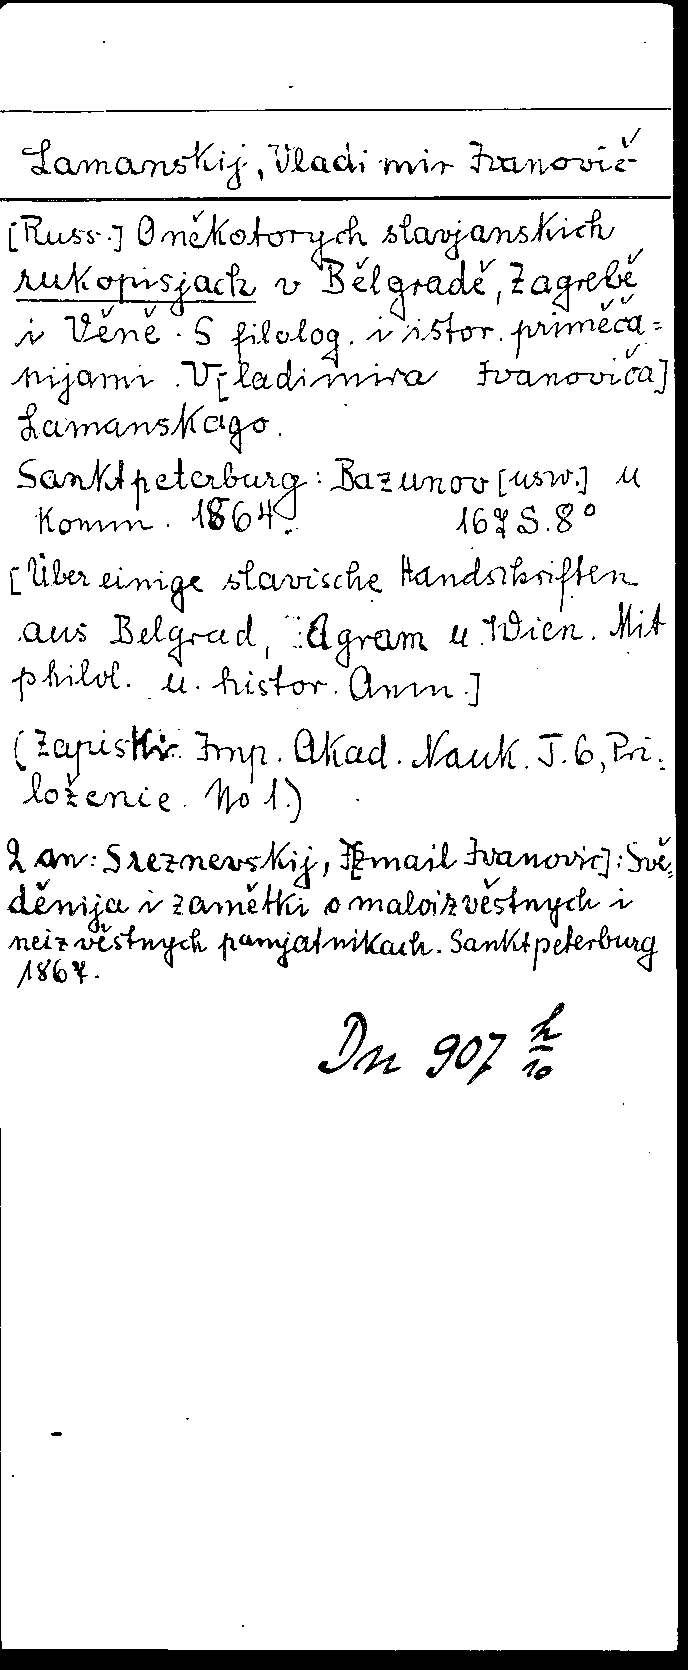 Lamanskij, Vladimir Ivanovič
[Russ.] O někotorych slavjanskich
rukopisjach v Bělgradě, Zagrebě
i Věně. S filolog. i istor. priměča=
nijami V[ladimira Ivanoviča]
Lamanskago.
Sanktpeterburg: Bazunov [usw.] u
Komm. 1864. 167 S. 8°
[Über einige slavische Handschriften
aus Belgrad, Agram u. Wien. Mit
philol. u. histor. Anm.]
(Zapiski Imp. Akad. Nauk. T. 6, Pri=
loženie No 1.)
2 an: Sreznevskij, I[zmail Ivanovic]: Svě=
děnija i zamětki o maloizvěstnych i
neizvěstnych pamjatnikach. Sanktpeterburg
1867.
Dn 907 h/10